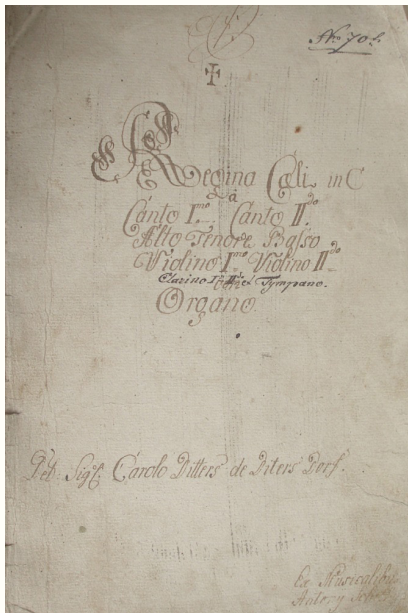 Nro 70.
Regina Cæli in C
à
Canto Imo Canto IIdo
Alto Tenore Basso
Violino Imo Violino IIdo
Clarino Imo IIdo et Tympano.
Organo.
Del Sigr. Carolo Ditters de Diters Dorf.
Ex Musicalibus